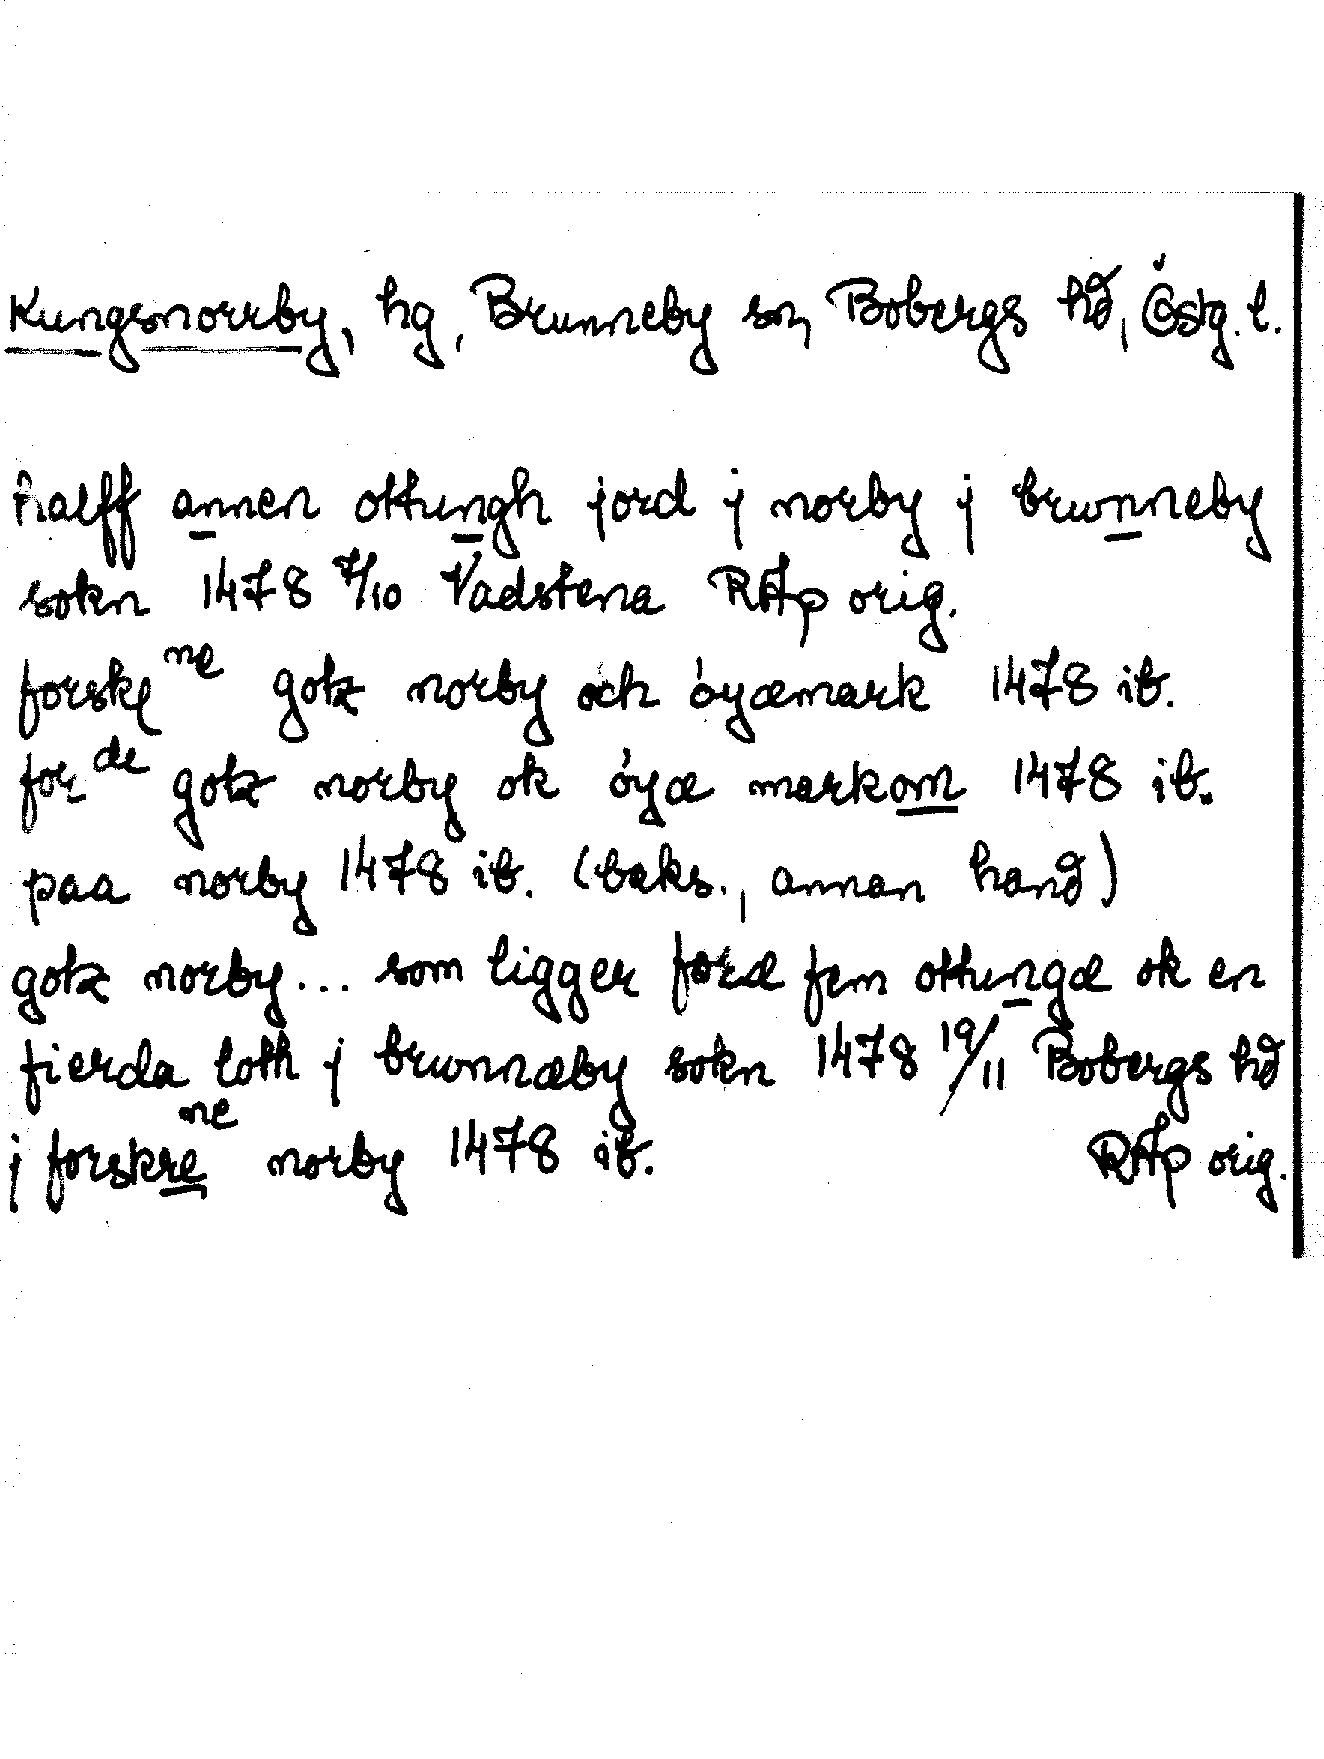 Kungsnorrby, hg, Brunneby sn, Bobergs hd, Östg. l.
halff annen ottungh jord j norby j brwnneby
sokn 1478 7/10 Vadstena RAp orig.
forske ne gotz norby och óyæmark 1478 ib.
for de gotz norby ok óyæ markom 1478 ib.
paa norby 1478 ib. (baks., annan hand)
gotz norby... som ligger foræ fem ottungæ ok en
fierda loth j brwnnæby sokn 1478 19/11 Bobergs hd
j forskre ne norby 1478 ib. RAp orig.